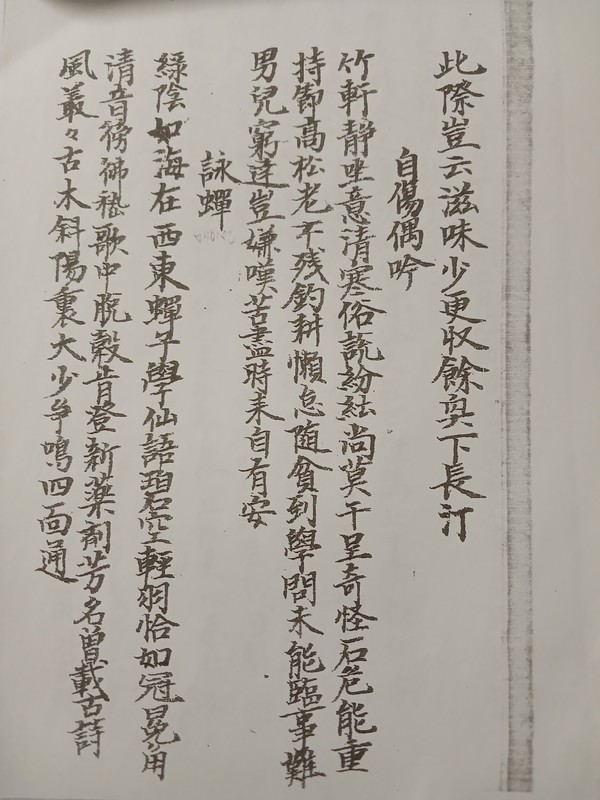 此際豈云滋味少更収餘興下長汀
自傷偶吟
竹軒靜坐意清寒俗說紛紜尚莫干呈奇怪石危能重
持節高松老不残釣耕懶怠随貧到學問未能臨事難
男兒窮達豈嫌嘆苦盡時来自有安
詠蟬
綠陰如海在西東蟬子學仙語碧空輕羽恰如冠冕用
清音彷彿歌中脫殼肯登新藥劑芳名曽載古詩
風叢々古木斜陽裏大少爭鳴四面通